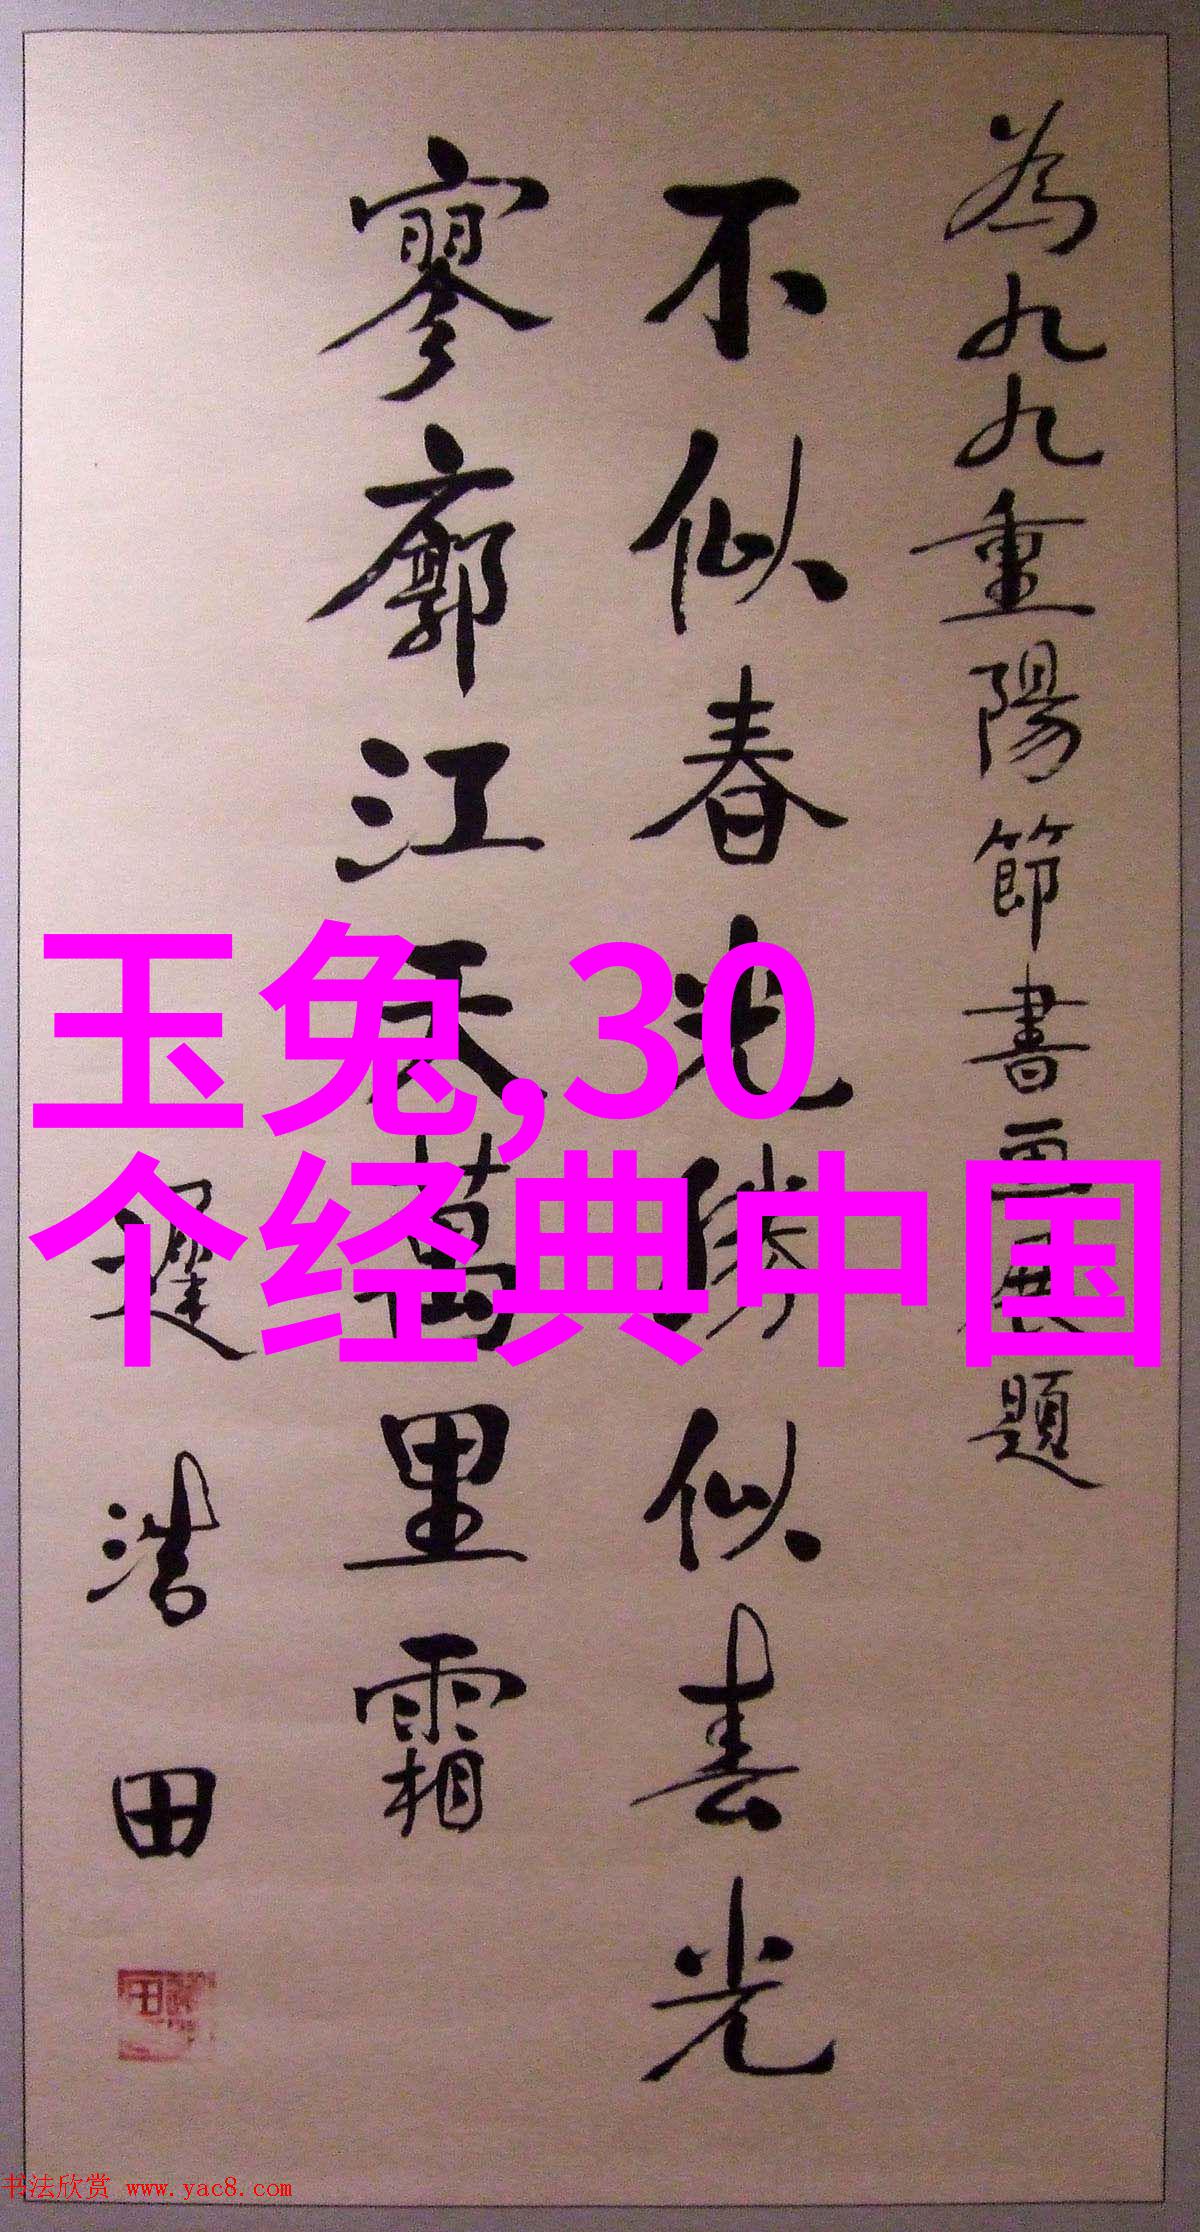 為九九重陽節書画展題
不似春光勝似春光
寥廓江天萬里霜
遲浩田
玉兔,30
个经典中国
书法欣赏 www.yac8.com